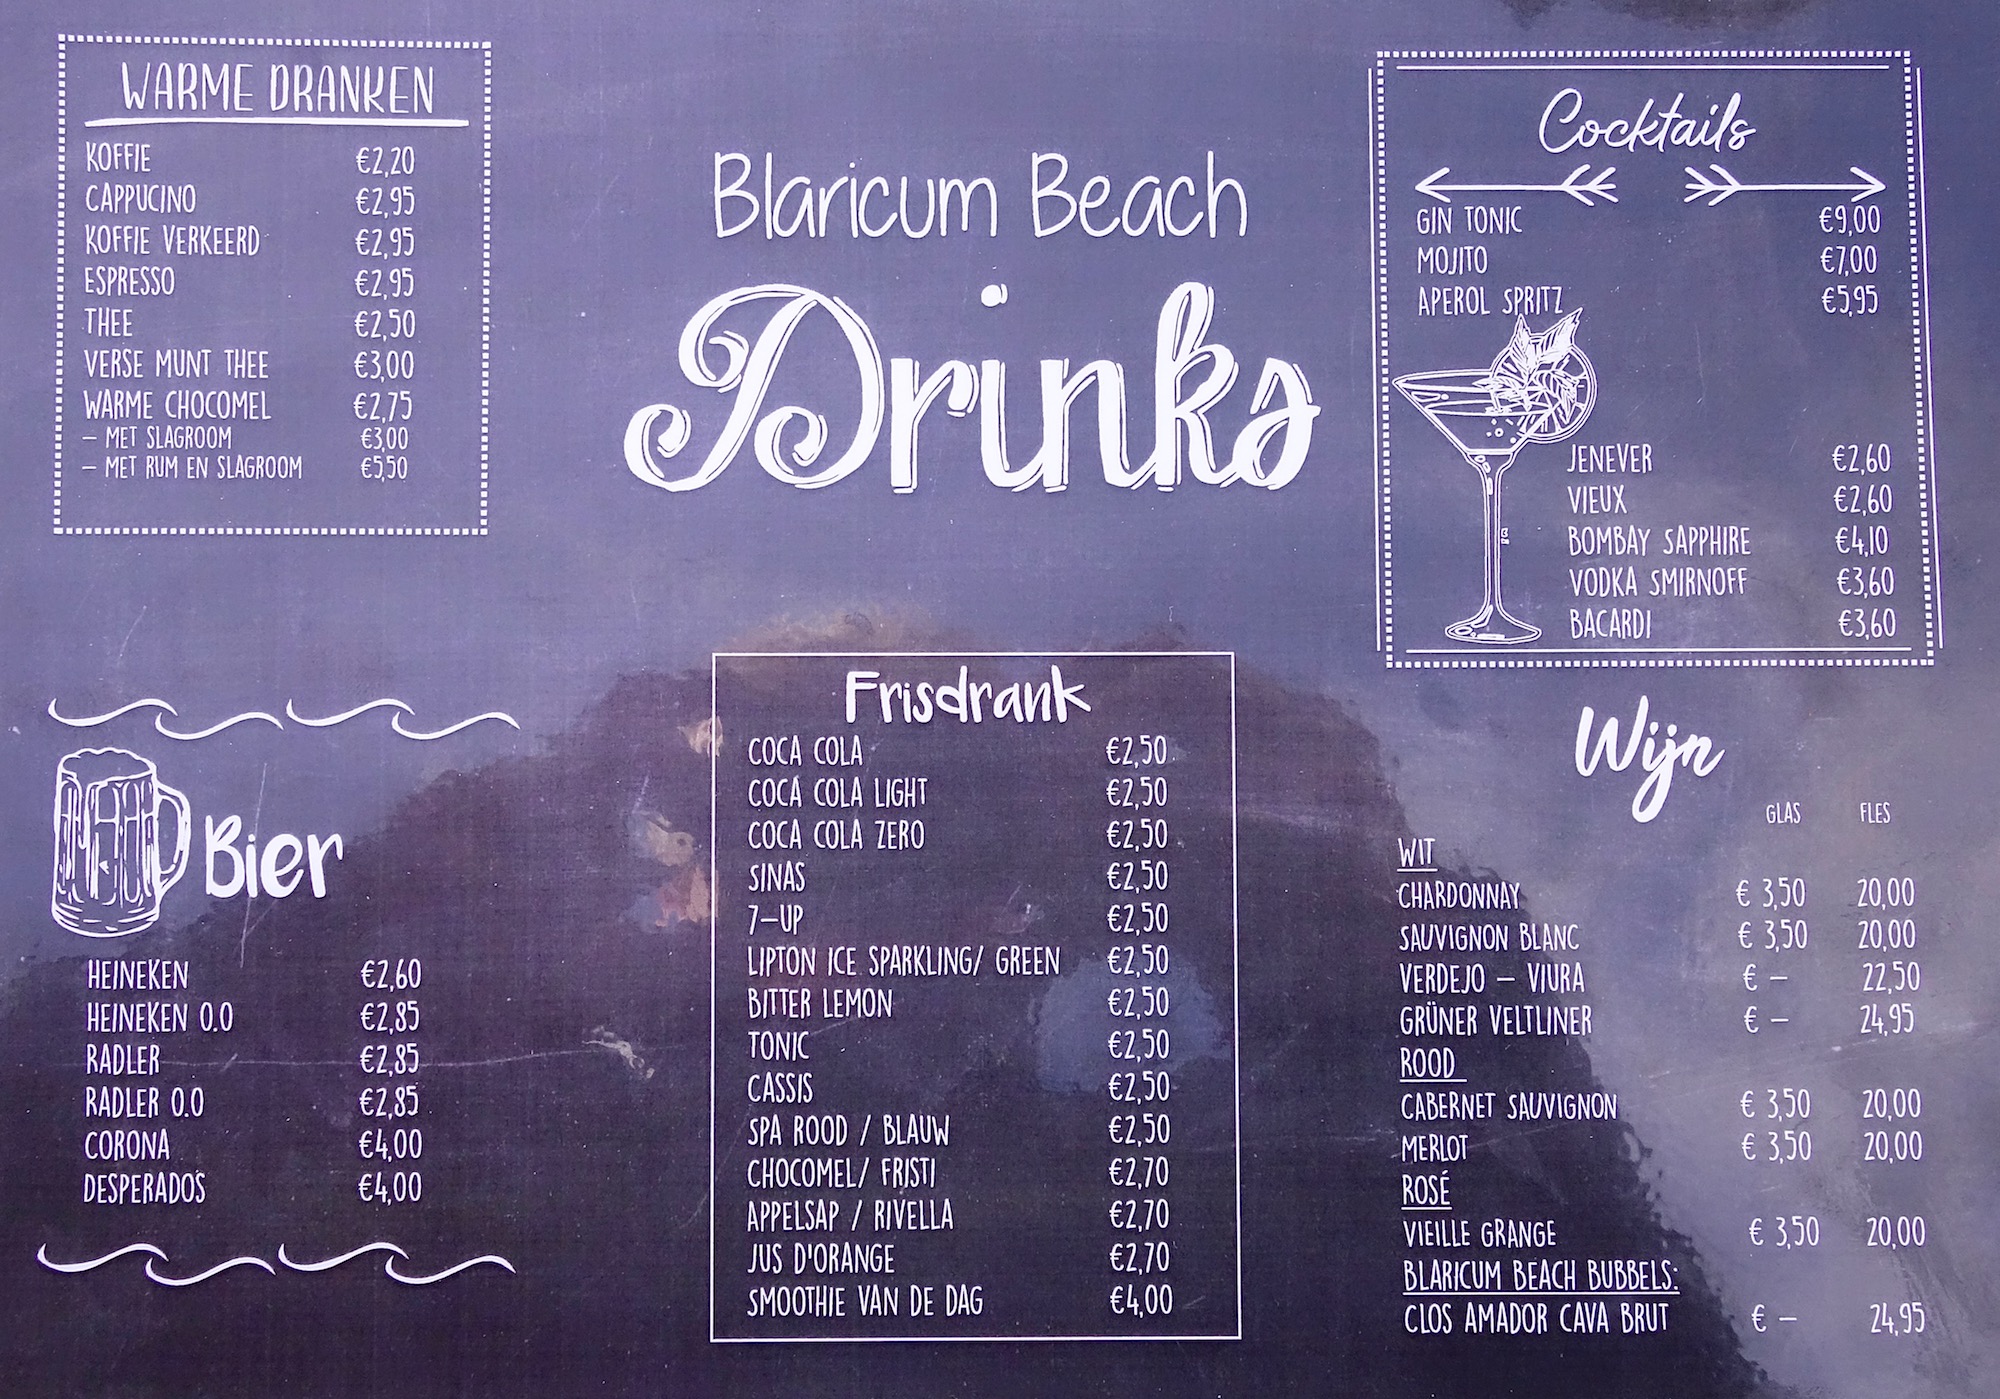 WARME DRANKEN
KOFFIE €2,20
CAPPUCINO €2,95
KOFFIE VERKEERD €2,95
ESPRESSO €2,95
THEE €2,50
VERSE MUNT THEE €3,00
WARME CHOCOMEL €2,75
– MET SLAGROOM €3,00
– MET RUM EN SLAGROOM €5,50
Blaricum Beach
Drinks
Cocktails
GIN TONIC €9,00
MOJITO €7,00
APEROL SPRITZ €5,95
JENEVER €2,60
VIEUX €2,60
BOMBAY SAPPHIRE €4,10
VODKA SMIRNOFF €3,60
BACARDI €3,60
Bier
HEINEKEN €2,60
HEINEKEN 0.0 €2,85
RADLER €2,85
RADLER 0.0 €2,85
CORONA €4,00
DESPERADOS €4,00
Frisdrank
COCA COLA €2,50
COCA COLA LIGHT €2,50
COCA COLA ZERO €2,50
SINAS €2,50
7–UP €2,50
LIPTON ICE SPARKLING/ GREEN €2,50
BITTER LEMON €2,50
TONIC €2,50
CASSIS €2,50
SPA ROOD / BLAUW €2,50
CHOCOMEL/ FRISTI €2,70
APPELSAP / RIVELLA €2,70
JUS D'ORANGE €2,70
SMOOTHIE VAN DE DAG €4,00
Wijn
GLAS FLES
WIT
CHARDONNAY € 3,50 20,00
SAUVIGNON BLANC € 3,50 20,00
VERDEJO – VIURA € – 22,50
GRÜNER VELTLINER € – 24,95
ROOD
CABERNET SAUVIGNON € 3,50 20,00
MERLOT € 3,50 20,00
ROSÉ
VIEILLE GRANGE € 3,50 20,00
BLARICUM BEACH BUBBELS:
CLOS AMADOR CAVA BRUT € – 24,95